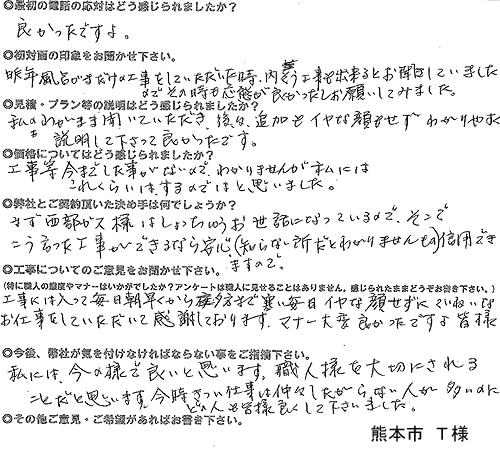 ◎最初の電話の応対はどう感じられましたか？
良かったですよ。
◎初対面の印象をお聞かせ下さい。
昨年風呂がまだけの工事をしていただいた時、内装工事も出来るとお聞きしていました
のでその時も感じが良かったしお願いしてみました。
◎見積・プラン等の説明はどう感じられましたか？
私のわがまま聞いていただき、後の追加もイヤな顔もせずわかりやすく
説明して下さって良かったです。
◎価格についてはどう感じられましたか？
工事等今までした事がないので、わかりませんが私には
これくらいはするのではと思いました。
◎弊社とご契約頂いた決め手は何でしょうか？
まず西部ガス様はしょっちゅうお世話になっているので、そこで
こう言った工事ができるなら安心(知らない所だとわかりませんもの)信用でき
ますので。
◎工事についてのご意見をお聞かせ下さい。
(特に職人の態度やマナーはいかがでしたか？アンケートは職人に見せることはありません。感じられたままどうぞお書き下さい。)
工事には入って毎日朝早くから夕方まで寒い毎日イヤな顔せずにていねいな
お仕事をしていただいて感謝しております。マナー大変良かったですよ皆様
◎今後、弊社が気を付けなければならない事をご指摘下さい。
私には、今の様で良いと思います。職人様を大切にされる
ことだと思います。今時きつい仕事は仲々したがらない人が多いのに
どの人も皆様良くして下さいました。
◎その他ご意見・ご希望があればお書き下さい。
熊本市 T様